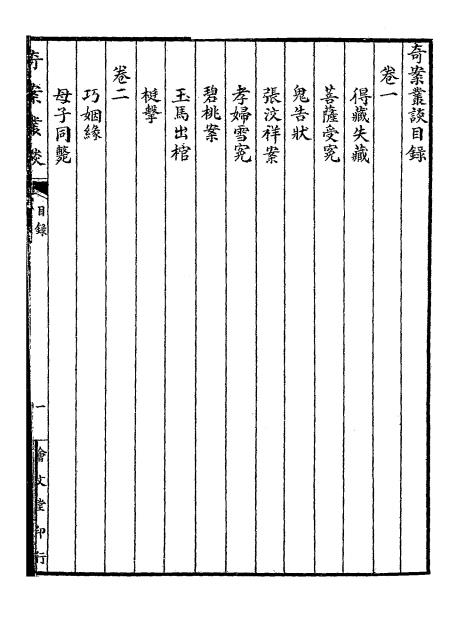 奇案叢談目錄
卷一
得藏失藏
菩薩受冤
鬼告狀
張汶祥案
孝婦雪冤
碧桃案
玉馬出棺
梃擊
卷二
巧姻緣
母子同斃
奇案叢談
目錄
一
會文堂印行